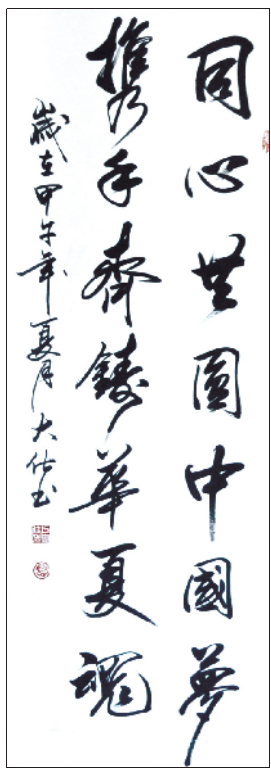 同心共圓中國夢
携手齊鑄華夏魂
歲在甲午年夏月大书